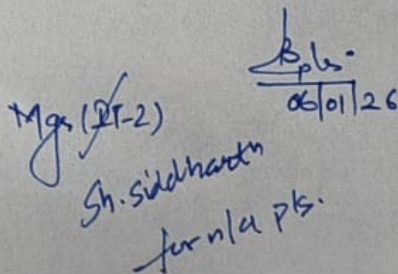 pls.
06/01/26
Mgr (IT-2)
Sh. Siddharth
for n/a pls.